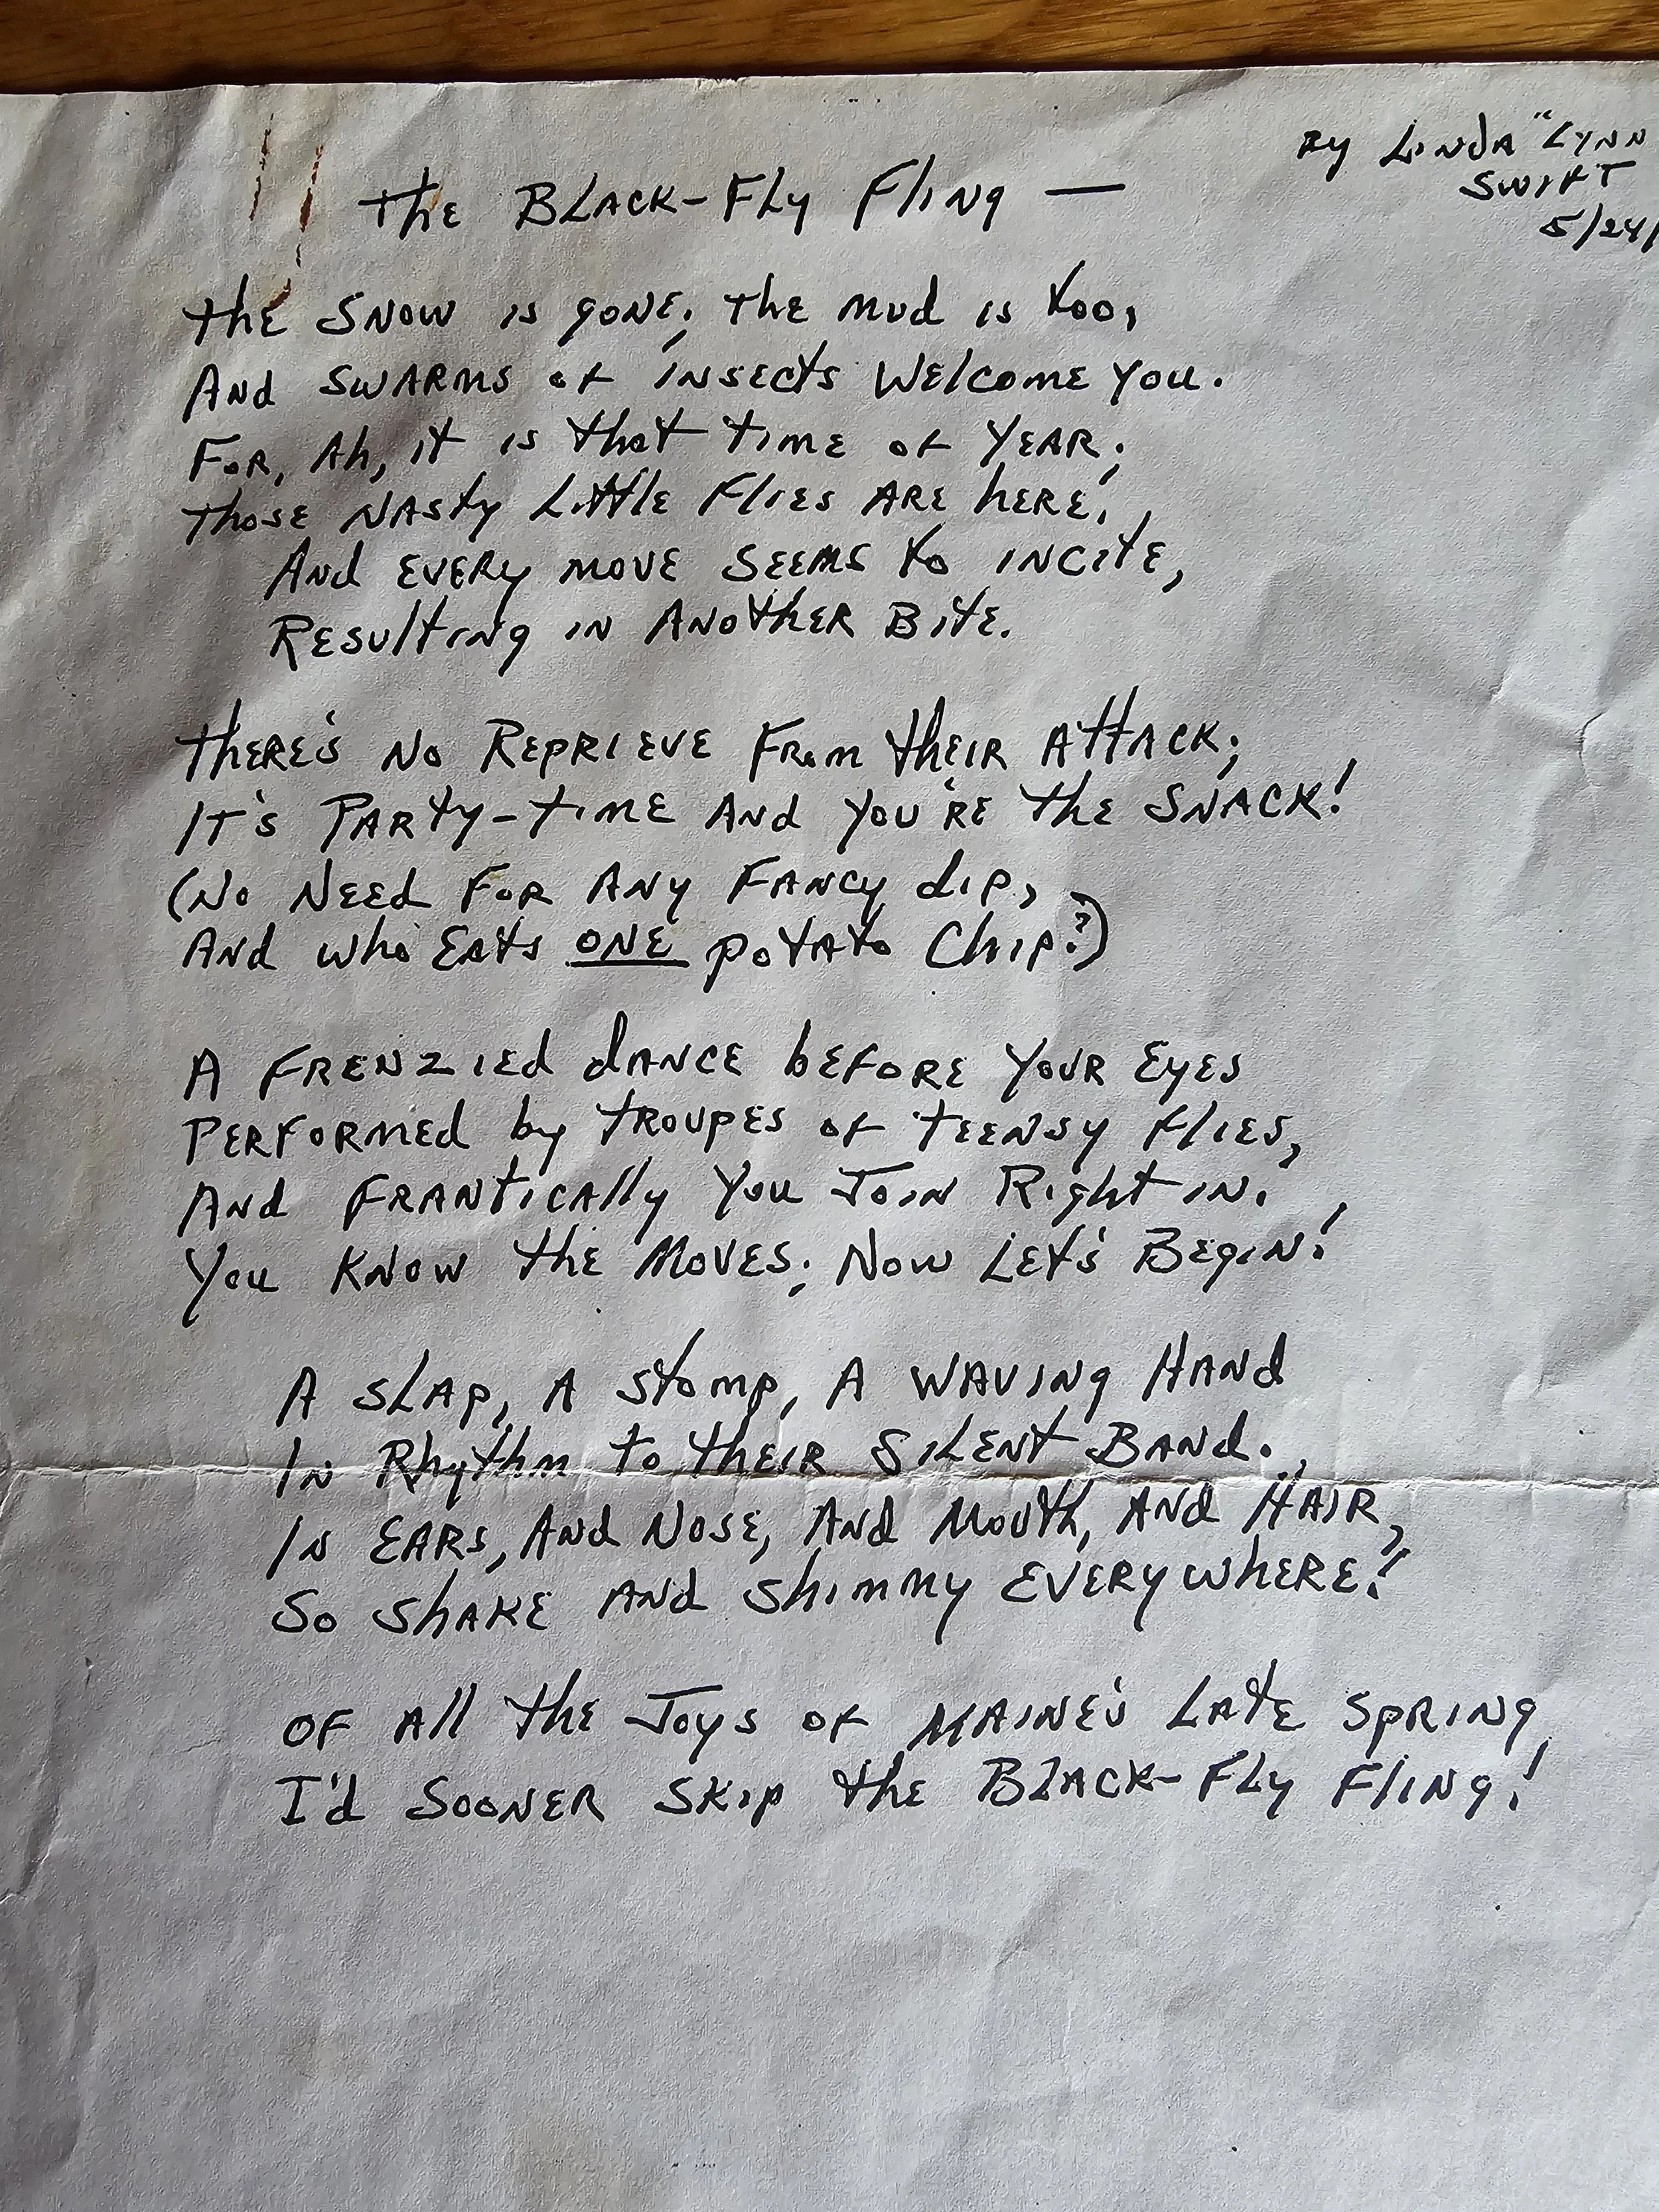 By Linda "Lynn
Swift
5/24/
The Black-Fly Fling —
The snow is gone; the mud is too,
And swarms of insects welcome you.
For, Ah, it is that time of year;
Those nasty little flies are here!
And every move seems to incite,
Resulting in another bite.
There's no reprieve from their attack;
It's party-time and you're the snack!
(No need for any fancy dip,
And who eats ONE potato chip?)
A frenzied dance before your eyes
Performed by troupes of teensy flies,
And frantically you join right in.
You know the moves; now let's begin!
A slap, a stomp, a waving hand
In rhythm to their silent band.
In ears, and nose, and mouth, and hair,
So shake and shimmy everywhere!
Of all the joys of Maine's late spring
I'd sooner skip the Black-Fly Fling!